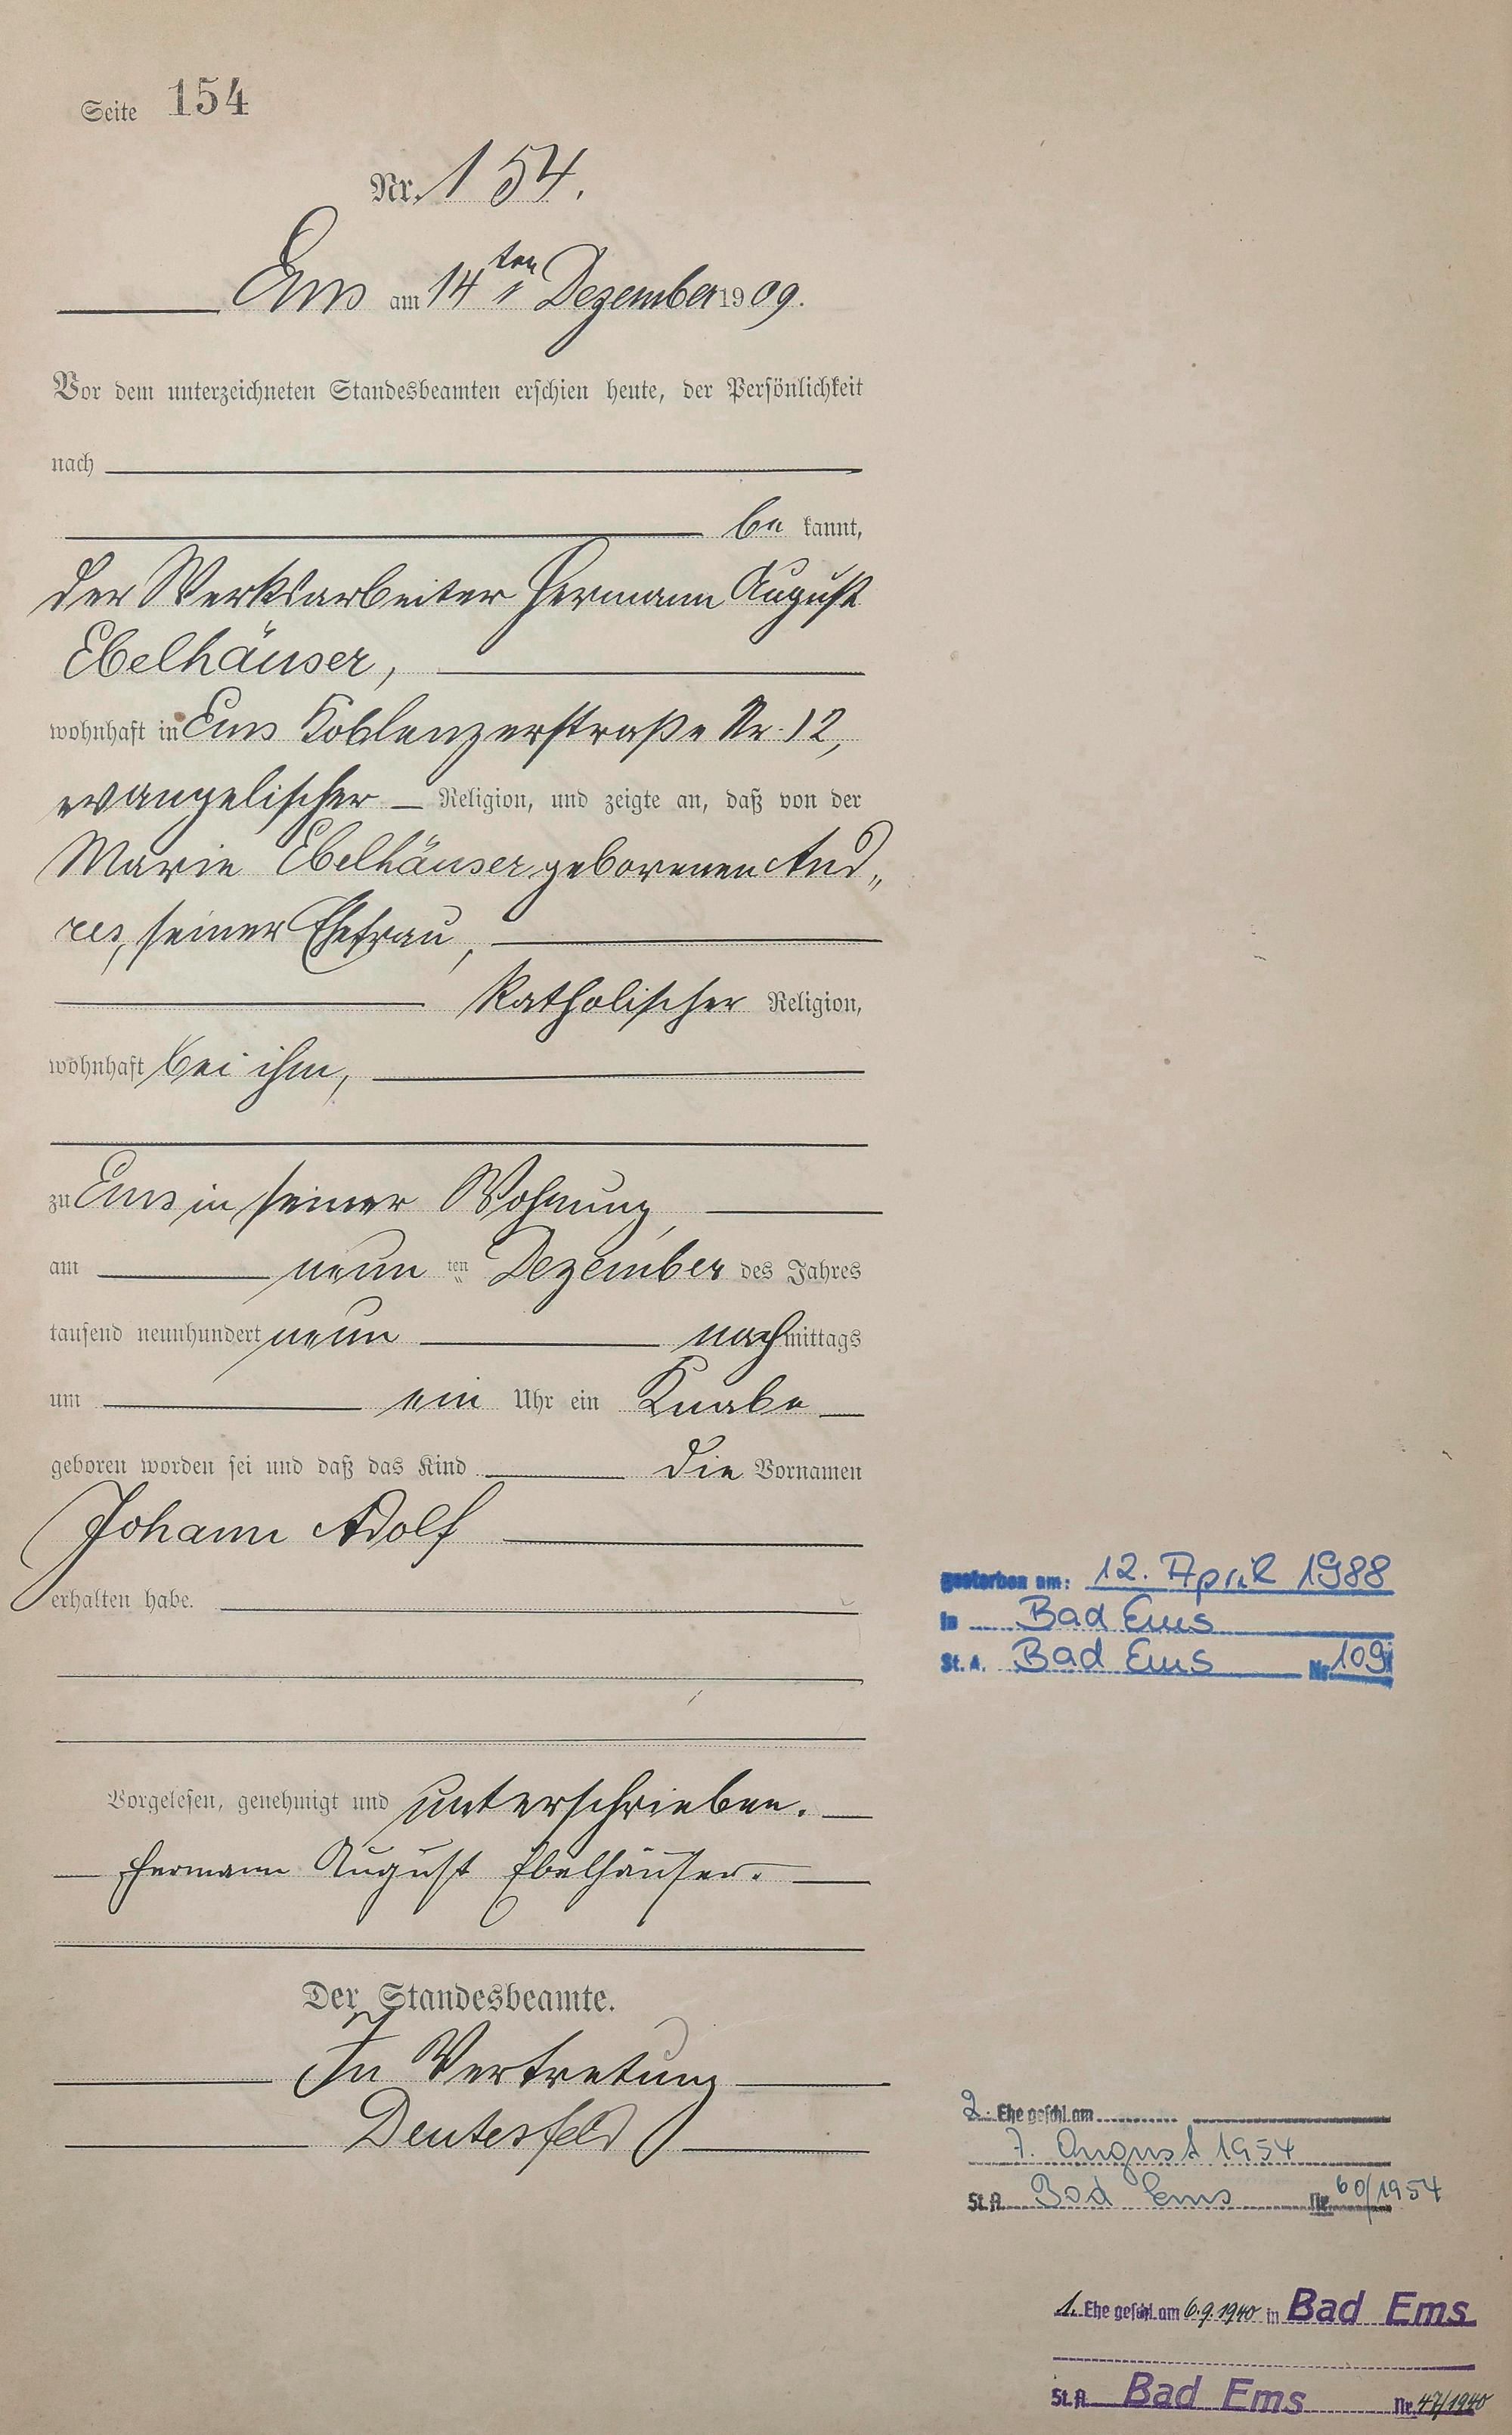 Seite 154
Nr. 154.
Ems am 14ten Dezember 1909.
Vor dem unterzeichneten Standesbeamten erschien heute, der Persönlichkeit
nach
be kannt,
der Werksarbeiter Hermann August
Ebelhäuser,
wohnhaft in Ems Koblenzerstraße Nr. 12,
evangelischer Religion, und zeigte an, daß von der
Marie Ebelhäuser geborenen And„
res, seiner Ehefrau,
katholischer Religion,
wohnhaft bei ihm,
zu Ems in seiner Wohnung,
am neun ten Dezember des Jahres
tausend neunhundert neun nachmittags
um ein Uhr ein Knabe
geboren worden sei und daß das Kind die Vornamen
Johann Adolf
erhalten habe.
gestorben am: 12. April 1988
in Bad Ems
St. A. Bad Ems Nr. 109
Vorgelesen, genehmigt und unterschrieben.
Hermann August Ebelhäuser.
Der Standesbeamte.
In Vertretung
Deutesfeld
2. Ehe geschl. am
7. August 1954
St.A. Bad Ems Nr. 60/1954
1. Ehe geschl. am 6.9.1940 in Bad Ems
St.A. Bad Ems Nr. 47/1940